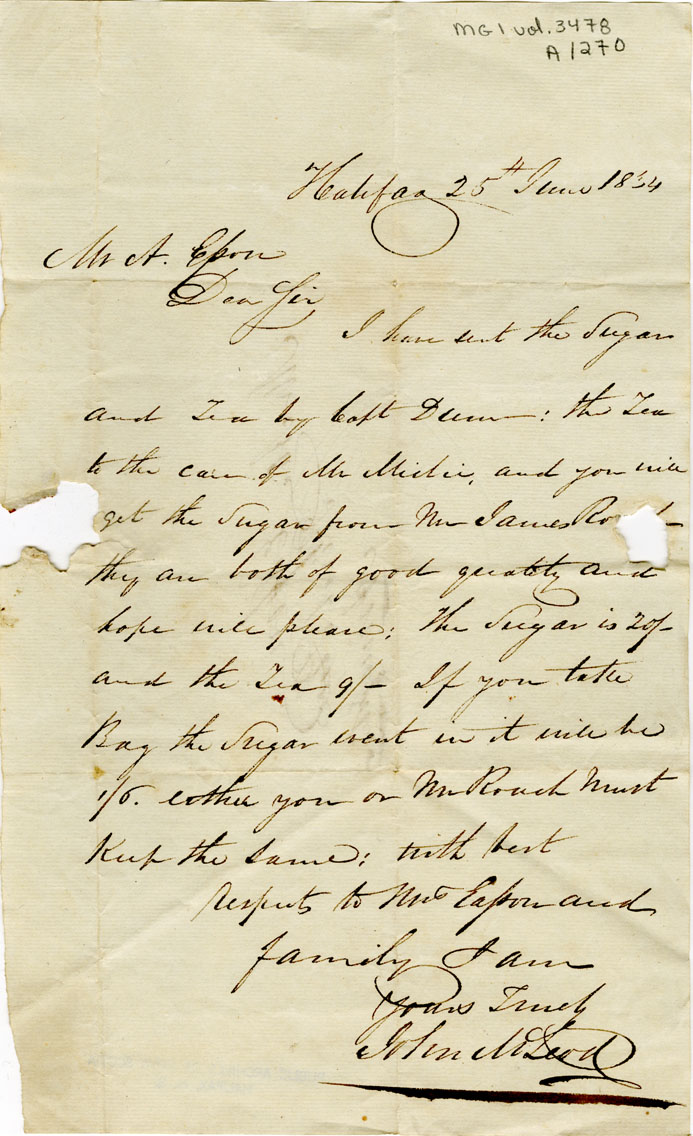 MG1 vol. 3478
A1270
Halifax 25th June 1834
Mr A. Eßon
Dear Sir
I have sent the Sugar
and Tea by Capt Dunn: the Tea
to the care of Mr Michie, and you will
get the Sugar from Mr James
they are both of good quality and
hope will please; the Sugar is 20/-
and the Tea 9/- If you take
Bag the Sugar went in it will be
1/6. either you or Mr Roach Must
Keep the same; with best
respects to Mrs Eaßon and
family I am
yours Truly
John McLeod